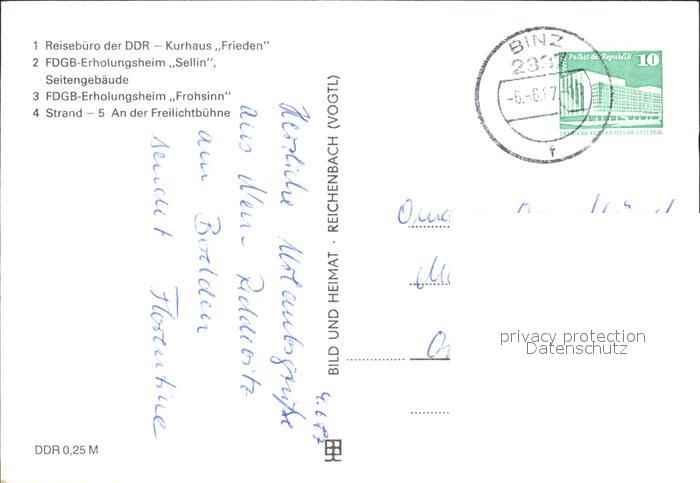 1 Reisebüro der DDR – Kurhaus „Frieden"
2 FDGB-Erholungsheim „Sellin",
Seitengebäude
3 FDGB-Erholungsheim „Frohsinn"
4 Strand – 5 An der Freilichtbühne
Herzliche Urlaubsgrüße
aus Neu-Reddevitz
am Bodden
sendet Florentine
4.6.87
BILD UND HEIMAT · REICHENBACH (VOGTL)
DDR 0,25 M
BINZ
2337
-6.-6.87
f
Palast der Republik 10
DEUTSCHE DEMOKRATISCHE REPUBLIK
privacy protection
Datenschutz